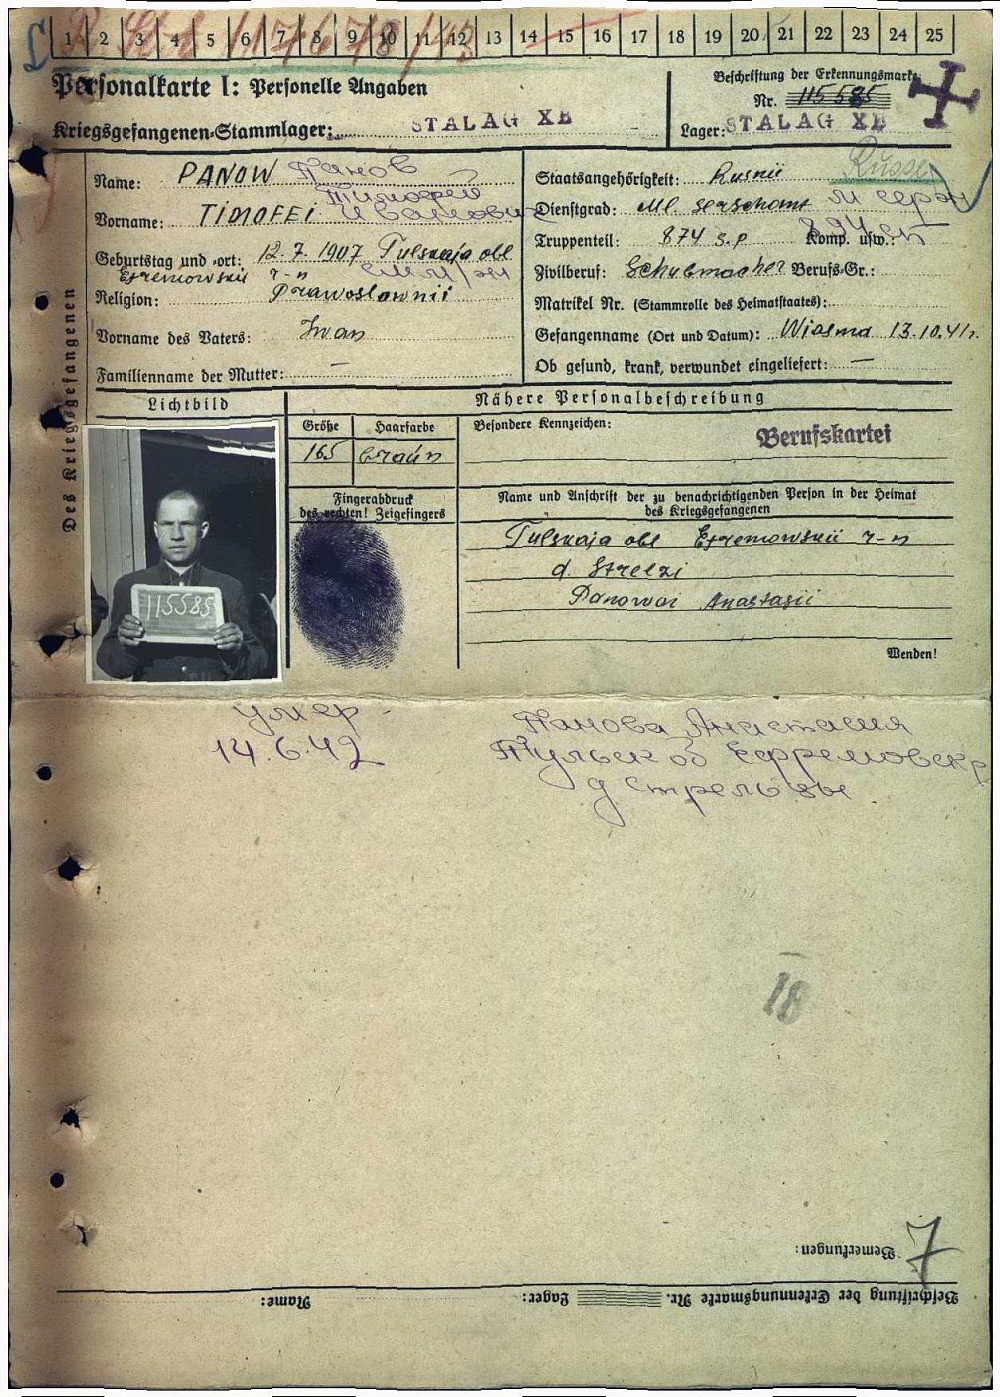 1 2 3 4 5 6 7 8 9 10 11 12 13 14 15 16 17 18 19 20 21 22 23 24 25
Personalkarte I: Personelle Angaben
Kriegsgefangenen-Stammlager: STALAG XB
Beschriftung der Erkennungsmarke
Nr. 115585
Lager: STALAG XB
Des Kriegsgefangenen
Name: PANOW Панов
Vorname: TIMOFEI Тимофей Иванович
Geburtstag und -ort: 12.7.1907 Tulskaja obl
Efremowskii r-n
Religion: Prawoslawnii
Vorname des Vaters: Iwan
Familienname der Mutter: —
Russe
Staatsangehörigkeit: Rusnii
Dienstgrad: Ml. serschant
Truppenteil: 874 s.p Komp. usw.:
Zivilberuf: Schuhmacher Berufs-Gr.:
Matrikel Nr. (Stammrolle des Heimatstaates):
Gefangenname (Ort und Datum): Wiasma 13.10.41.
Ob gesund, krank, verwundet eingeliefert: —
Lichtbild
Nähere Personalbeschreibung
Größe Haarfarbe
165 braun
Besondere Kennzeichen:
Berufskartei
Fingerabdruck
des rechten! Zeigefingers
115585
Name und Anschrift der zu benachrichtigenden Person in der Heimat
des Kriegsgefangenen
Tulskaja obl Efremowskii r-n
d. Strelzi
Panowai Anastasii
Wenden!
умер
14.6.42
Панова Анастасия
Тульск об Ефремовск р
д Стрельзы
18
7
Bemerkungen:
Beschriftung der Erkennungsmarke Nr. Lager: Name: